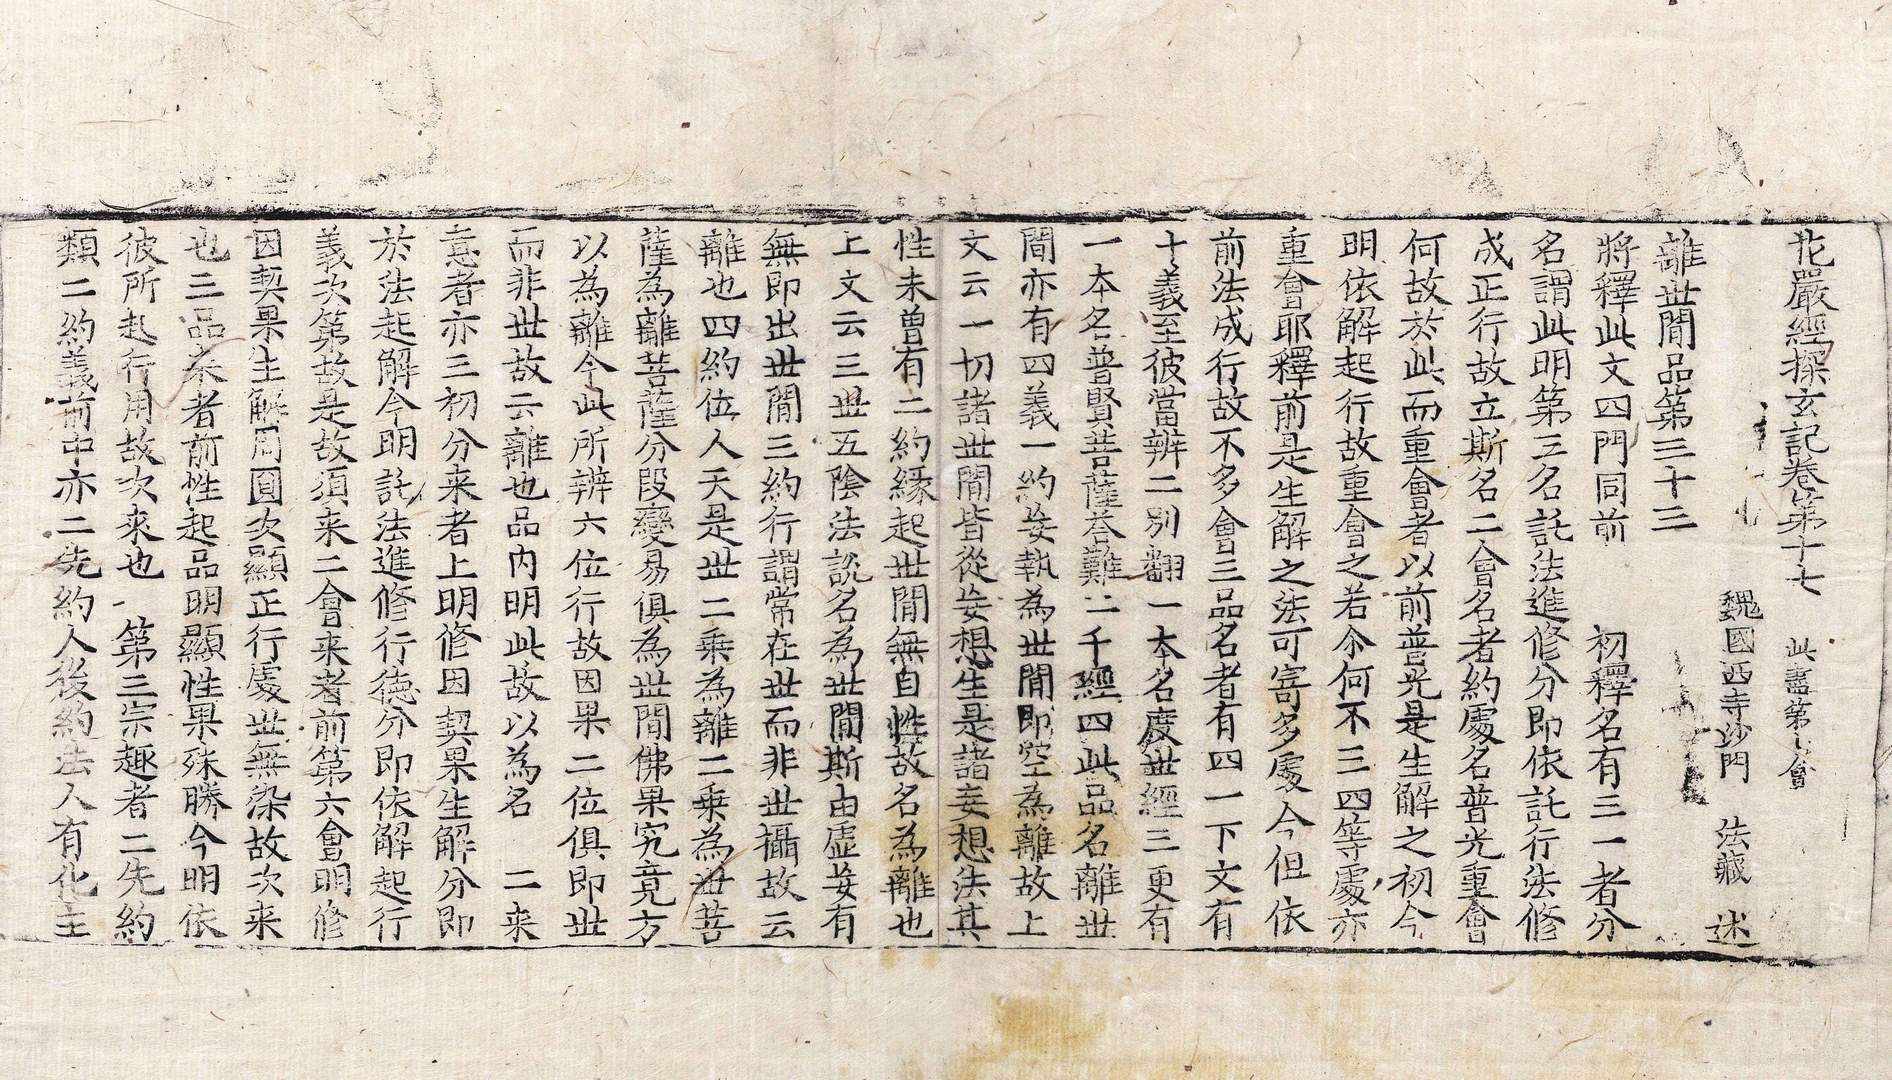 花嚴經探玄記卷第十七 此盡第七會
魏國西寺沙門 法藏 述
離世間品第三十三
將釋此文四門同前 初釋名有三一者分
名謂此明第三名託法進修分即依託行法修
成正行故立斯名二會名者約處名普光重會
何故於此而重會者以前普光是生解之初今
明依解起行故重會之若尒何不三四等處亦
重會耶釋前是生解之法可寄多處今但依
前法成行故不多會三品名者有四一下文有
十義至彼當辨二別翻一本名度世經三更有
一本名普賢菩薩荅難二千經四此品名離世
間亦有四義一約妄執為世間即空為離故上
文云一切諸世間皆從妄想生是諸妄想法其
性未曾有二約緣起世間無自性故名為離也
上文云三世五陰法說名為世間斯由虛妄有
無即出世間三約行謂常在世而非世攝故云
離也四約位人天是世二乘為離二乘為世菩
薩為離菩薩分段變易俱為世間佛果究竟方
以為離今此所辨六位行故因果二位俱即世
而非世故云離也品內明此故以為名 二来
意者亦三初分来者上明修因契果生解分即
於法起解今明託法進修行德分即依解起行
義次第故是故須来二會来者前第六會明修
因契果生解周圓次顯正行處世無染故次来
也三品来者前性起品明顯性果殊勝今明依
彼所起行用故次來也 第三宗趣者二先約
類二約義前中亦二先約人後約法人有化主